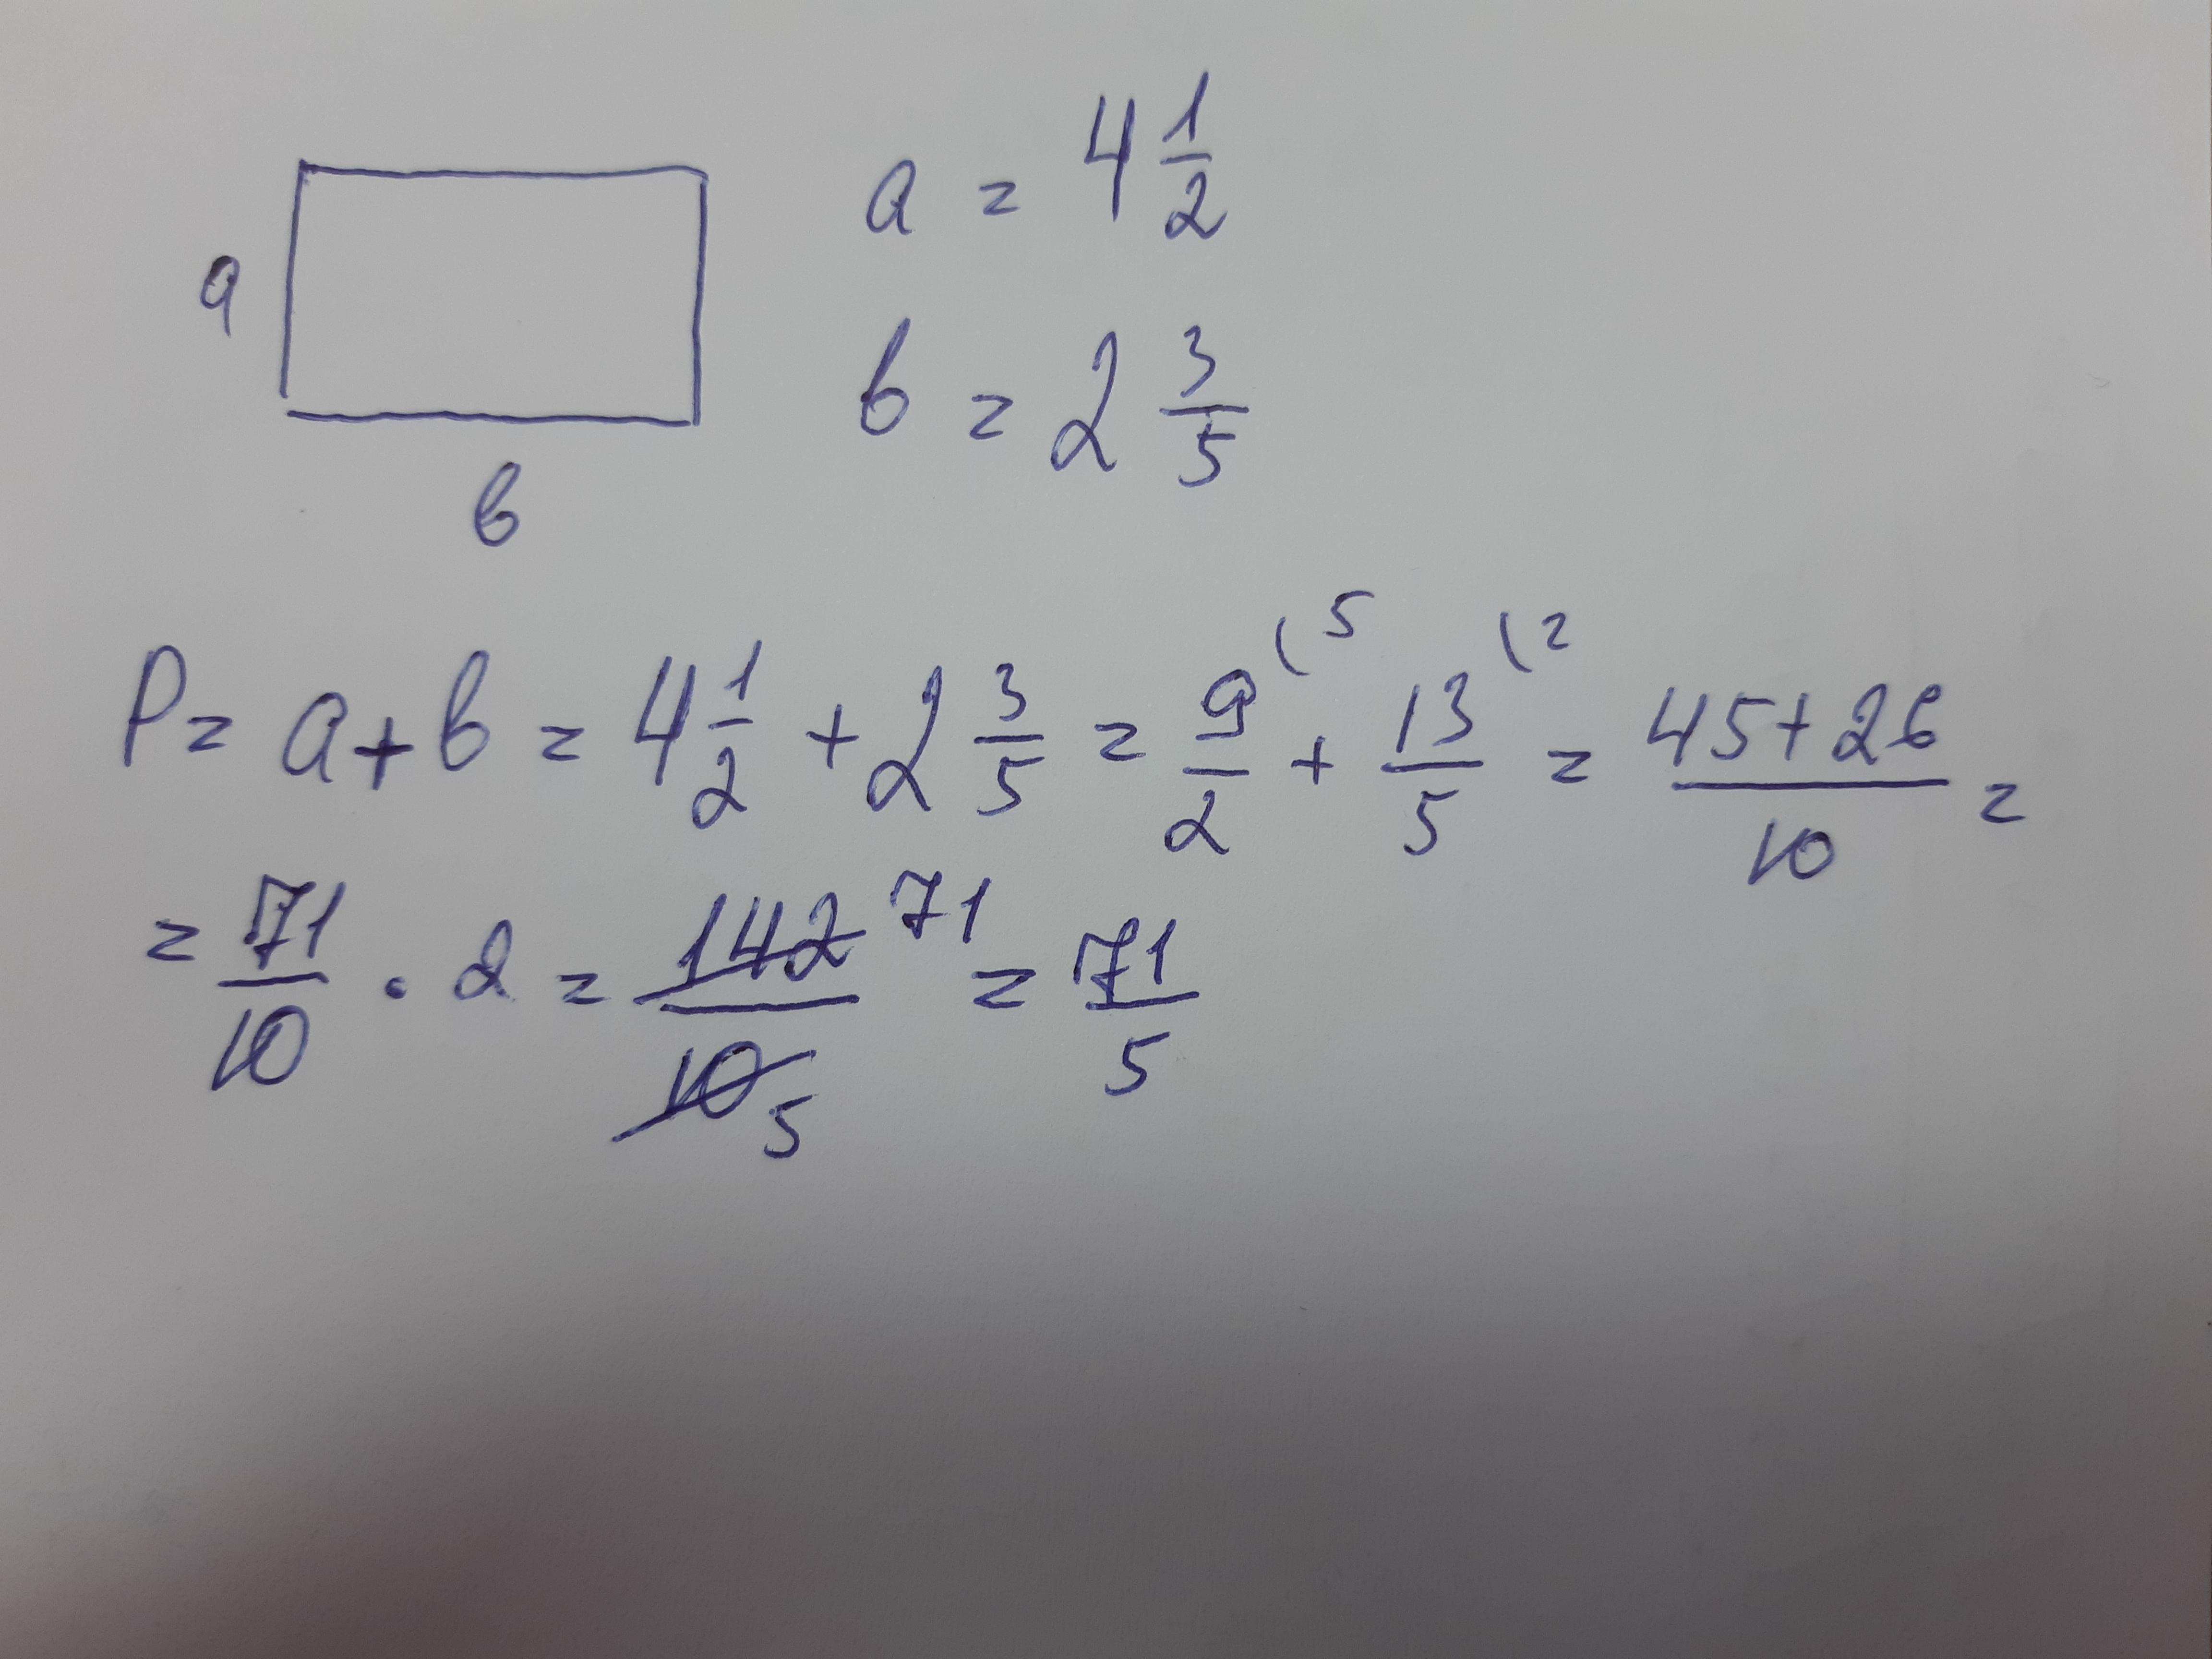 a = 4 1/2
a
b = 2 3/5
b
P = a + b = 4 1/2 + 2 3/5 = 9/2 (5 + 13/5 (2 = 45+26/10 =
= 71/10 · 2 = 142/10 71 5 = 71/5